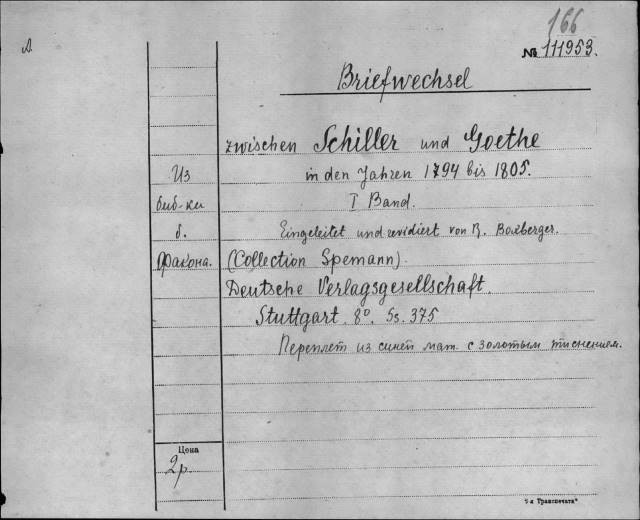 166
A
№ 111953.
Briefwechsel
zwischen Schiller und Goethe
Из
in den Jahren 1794 bis 1805.
биб-ки
I Band.
б.
Eingeleitet und revidiert von R. Boxberger.
Факона.
(Collection Spemann).
Deutsche Verlagsgesellschaft.
Stuttgart. 8°. Ss. 375
Переплет из синей мат. с золотым тиснением.
Цена
2 р.
5-я Транспечать"